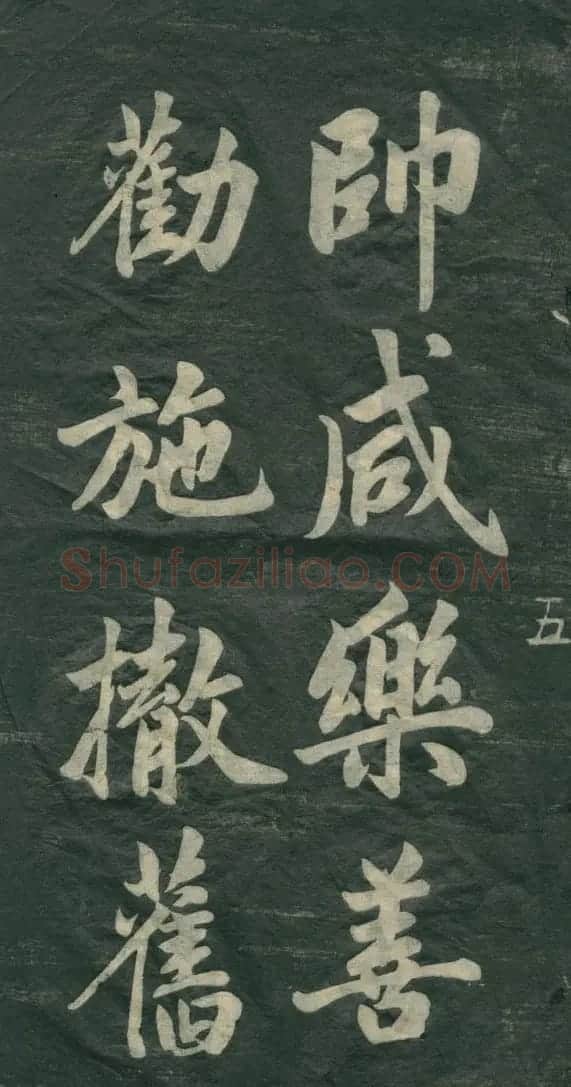 帥咸樂善
勸施撤舊
五
Shufaziliao.COM